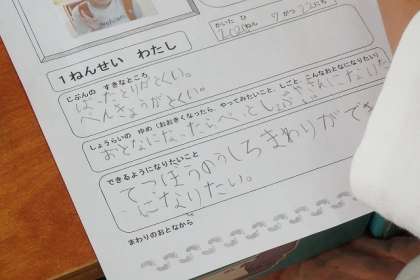 かいた ひ
2020ねん 7 がつ 22にち
1ねんせい わたし
じぶんの すきなところ
ばったとりがとくい。
べんきょうがとくい。
しょうらいの ゆめ（おおきくなったら やってみたいこと、しごと、こんなおとなになりたい）
おとなになったら
になりた
できるようになりたいこと
てつぼうのうしろまわりができ
になりたい。
まわりのおとなから